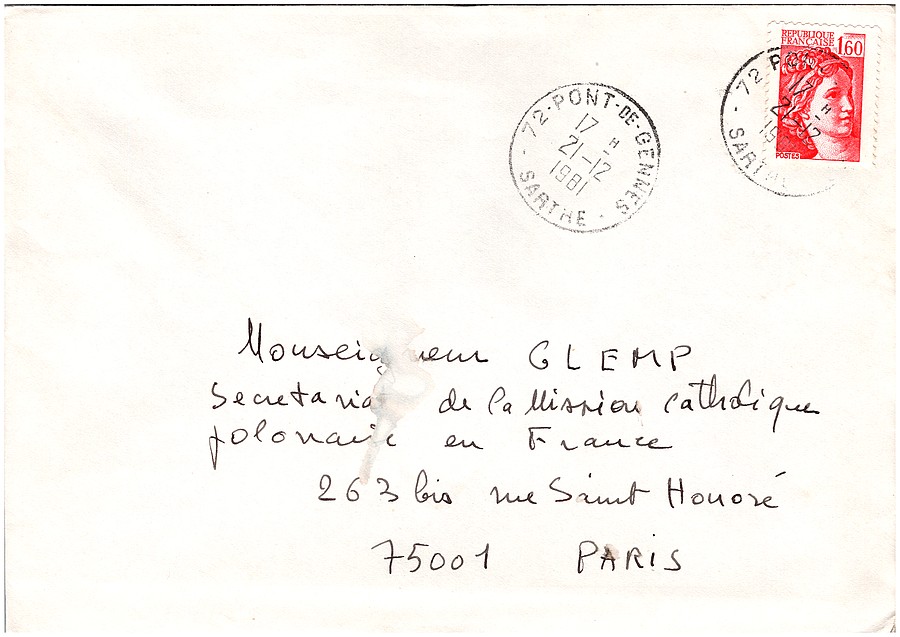 REPUBLIQUE
FRANÇAISE 1,60
POSTES
72-PONT-DE-GENNES
17 H
21-12
1981
SARTHE
72 PON
17 H
21-12
19
SARTHE
Monseigneur GLEMP
Secretariat de la Mission catholique
polonaise en France
263 bis rue Saint Honoré
75001 PARIS